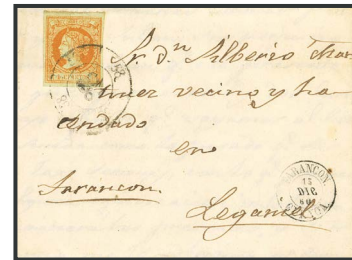 Sr. dⁿ Silberio Mar-
tinez vecino y ha-
cendado
en
Tarancon.
Leganiel
TARANCON
15
DIC.
60